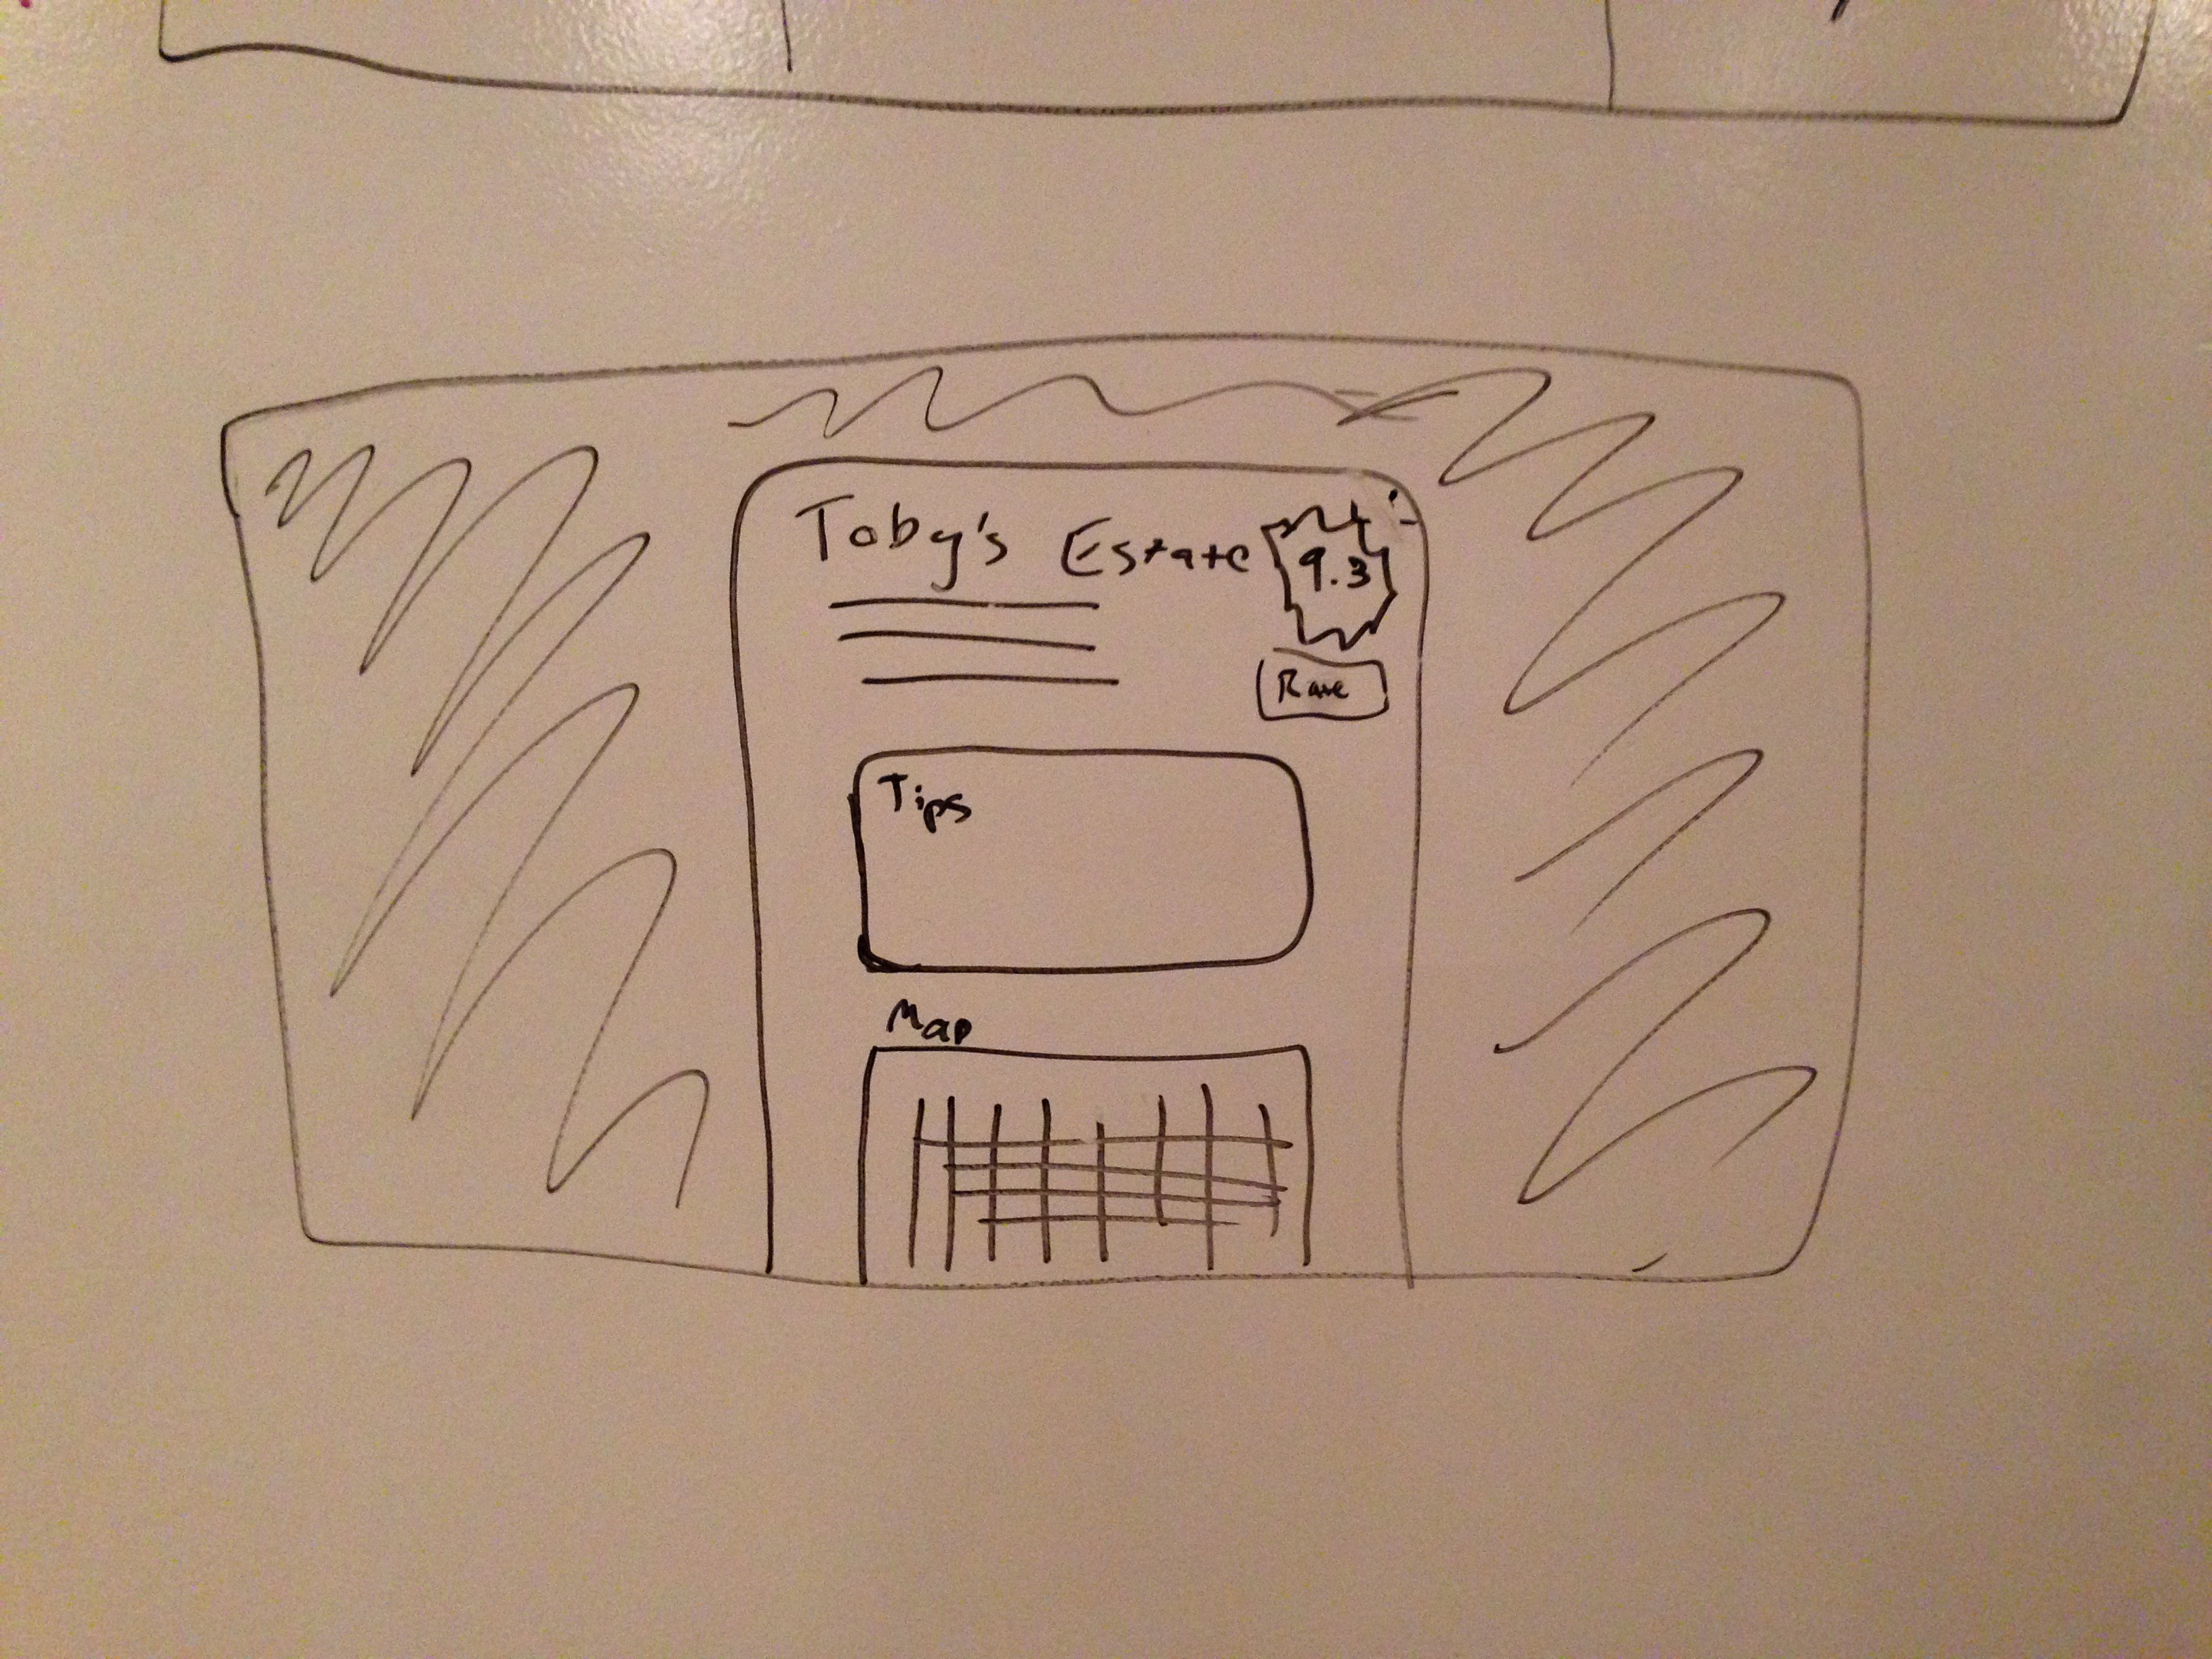 Toby's Estate
9.3
Rate
Tips
Map